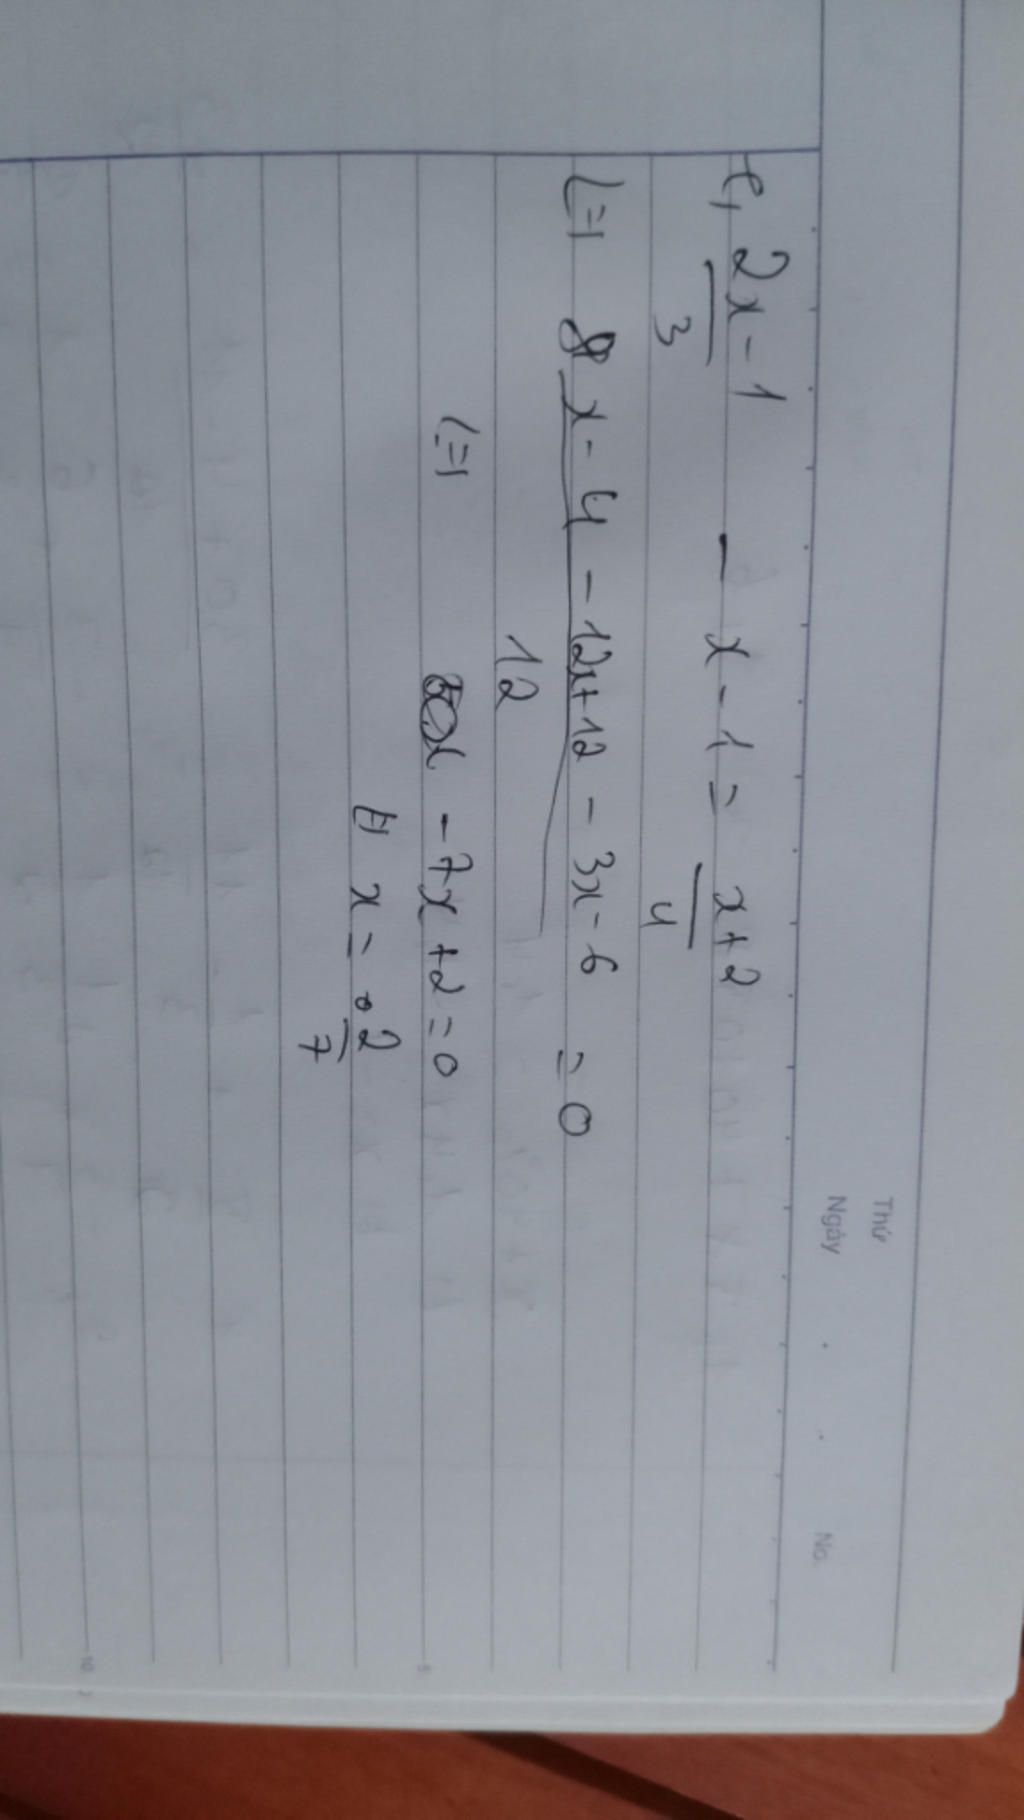 Thứ
Ngày . . No.
e, 2x - 1 - x - 1 = x + 2
3 4
<=> 8x - 4 - 12x + 12 - 3x - 6 = 0
12
<=> - 7x + 2 = 0
<=> x = 2
7
5
10